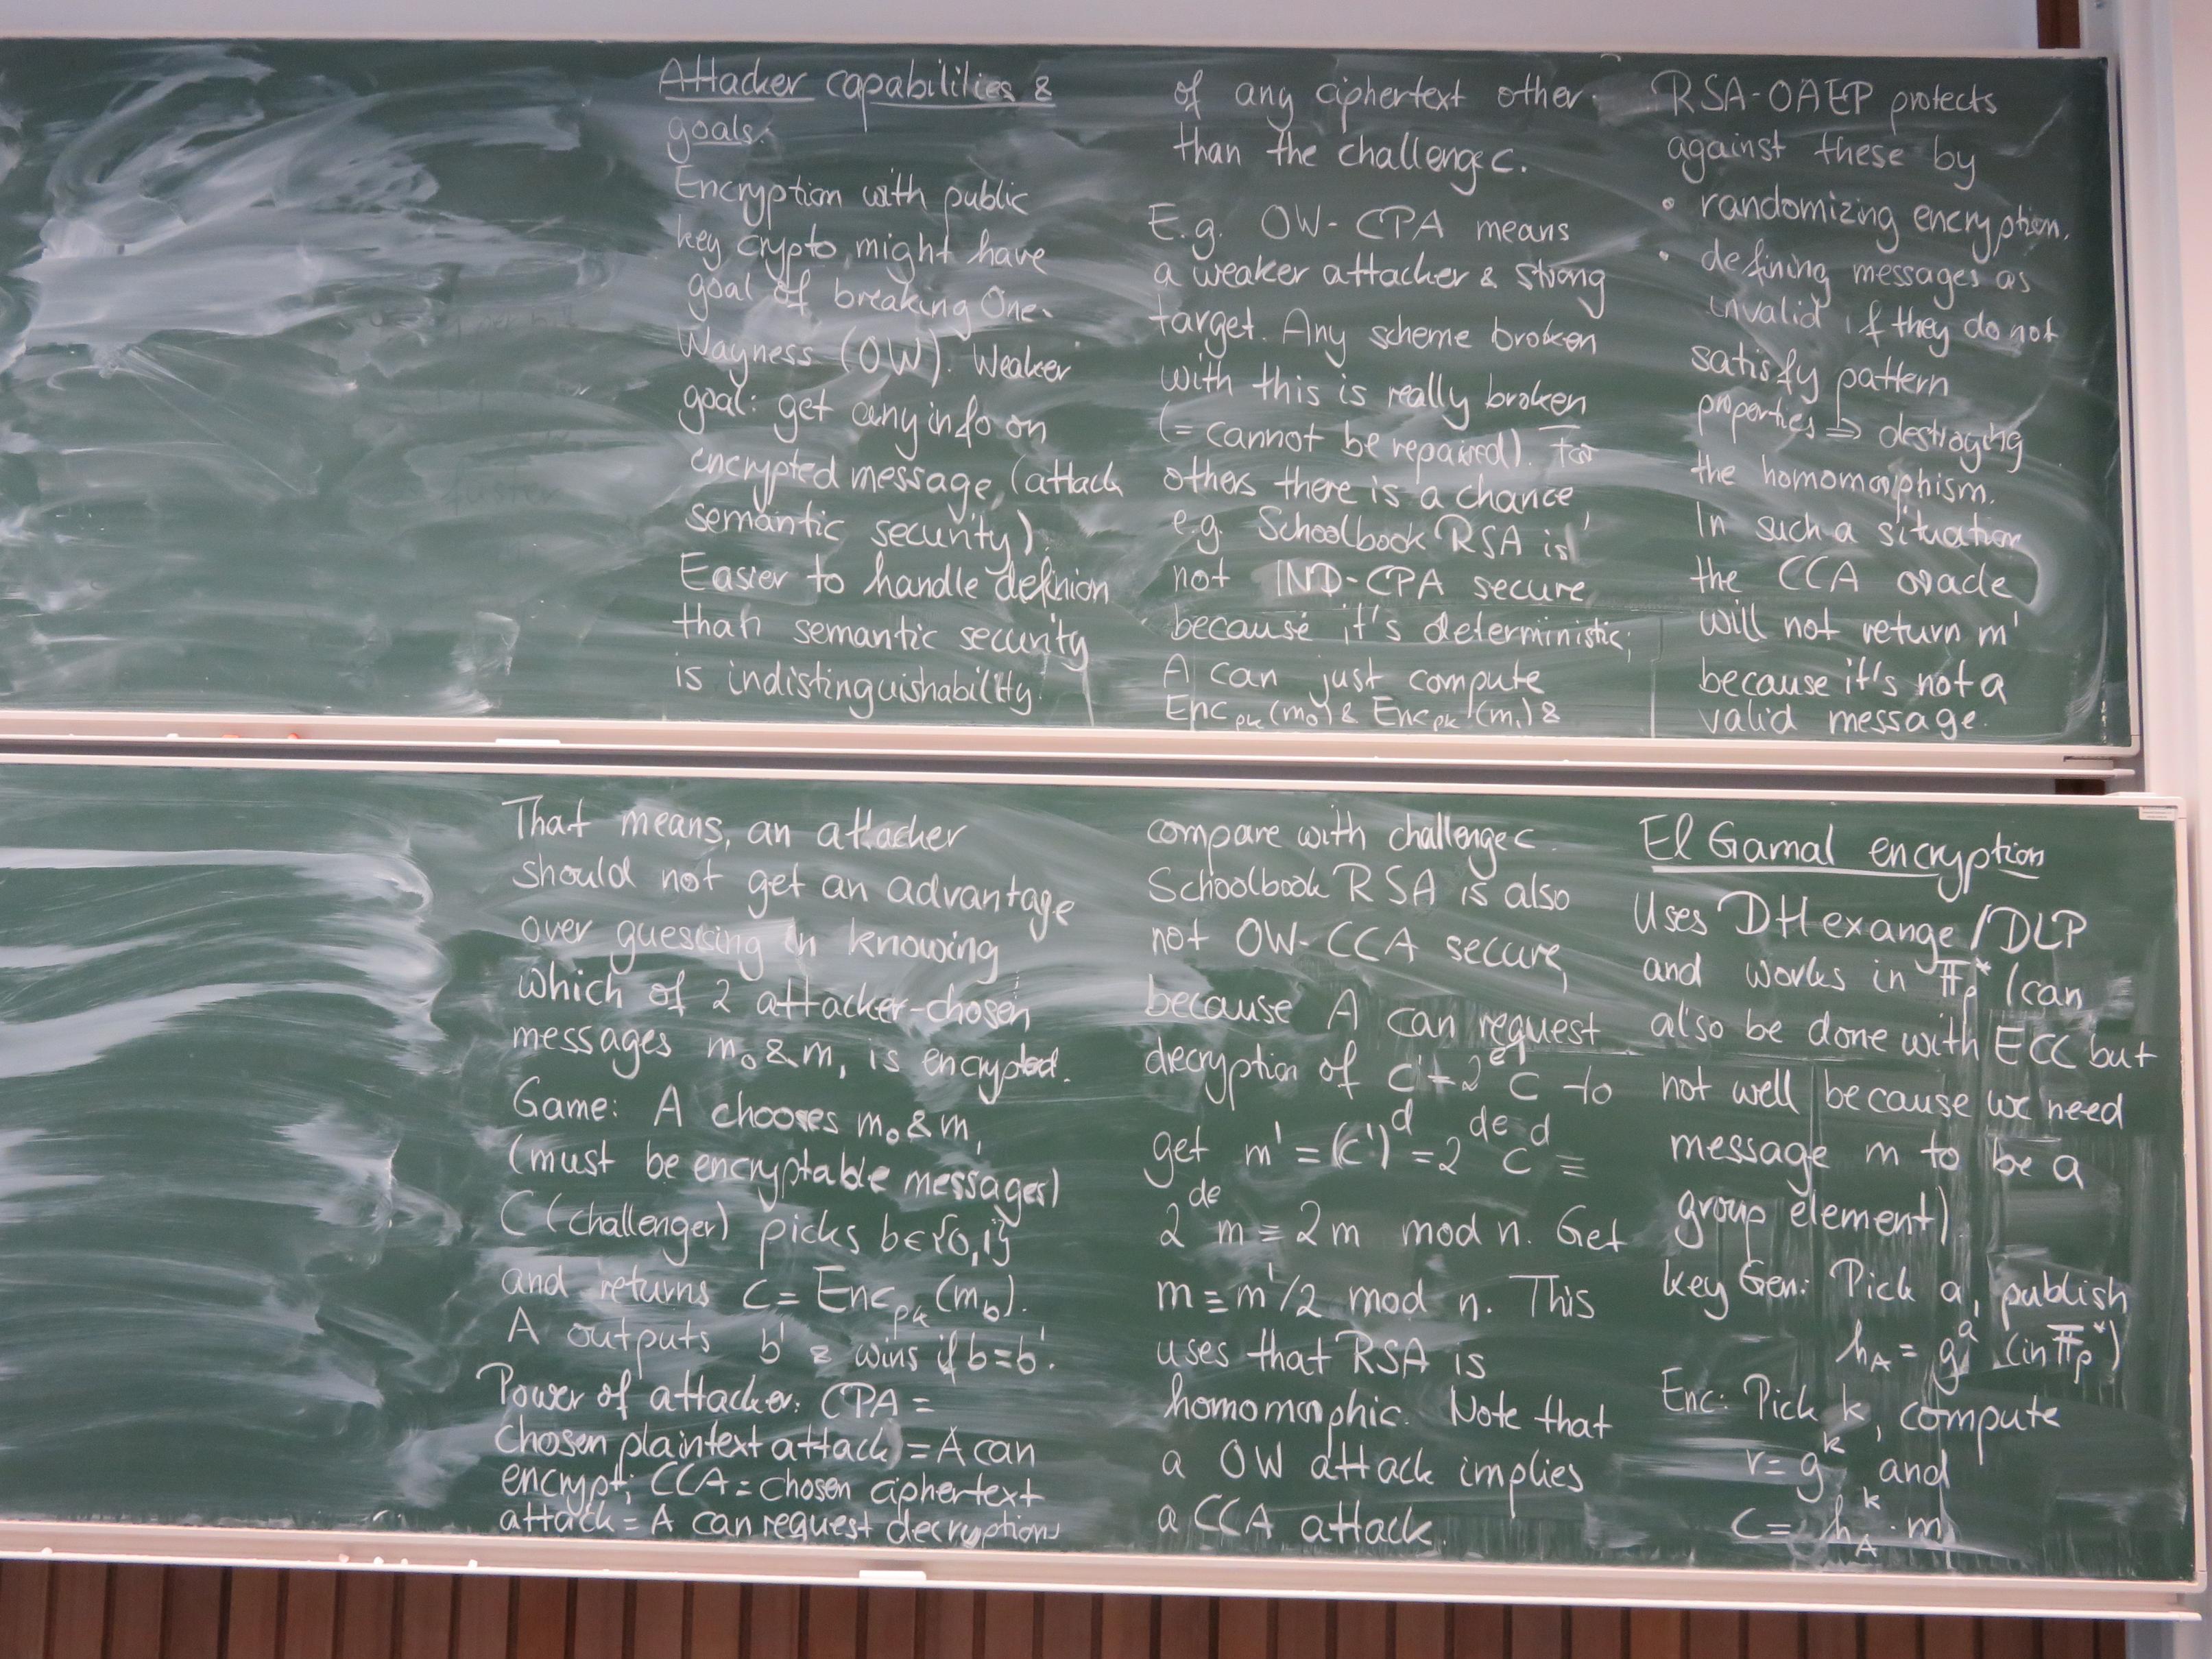 Attacker capabilities &
goals.
Encryption with public
key crypto might have
goal of breaking One-
Wayness (OW). Weaker
goal: get any info on
encrypted message, (attack
semantic security).
Easier to handle definion
than semantic security
is indistinguishability.
That means, an attacker
should not get an advantage
over guessing in knowing
which of 2 attacker-chosen
messages m₀ & m₁ is encrypted.
Game: A chooses m₀ & m₁
(must be encryptable messages)
C (challenger) picks b∈{0,1}
and returns c = Enc_pk (m_b).
A outputs b' & wins if b=b'.
Power of attacker: CPA =
chosen plaintext attack = A can
encrypt; CCA = chosen ciphertext
attack = A can request decryptions
of any ciphertext other
than the challenge c.
E.g. OW-CPA means
a weaker attacker & strong
target. Any scheme broken
with this is really broken
(= cannot be repaired). For
others there is a chance
e.g. Schoolbook RSA is
not IND-CPA secure
because it's deterministic;
A can just compute
Enc_pk (m₀) & Enc_pk (m₁) &
compare with challenge c.
Schoolbook RSA is also
not OW-CCA secure,
because A can request
decryption of c' = 2^e c to
get m' = (c')^d = 2^de c^d ≡
2^de m ≡ 2m mod n. Get
m ≡ m'/2 mod n. This
uses that RSA is
homomorphic. Note that
a OW attack implies
a CCA attack.
RSA-OAEP protects
against these by
• randomizing encryption.
• defining messages as
invalid if they do not
satisfy pattern
properties ⇒ destroying
the homomorphism.
In such a situation
the CCA oracle
will not return m'
because it's not a
valid message.
El Gamal encryption
Uses DH exange / DLP
and works in 𝔽_p^* (can
also be done with ECC but
not well because we need
message m to be a
group element)
Key Gen: Pick a, publish
h_A = g^a (in 𝔽_p^*)
Enc: Pick k, compute
r = g^k and
c = h_A^k · m